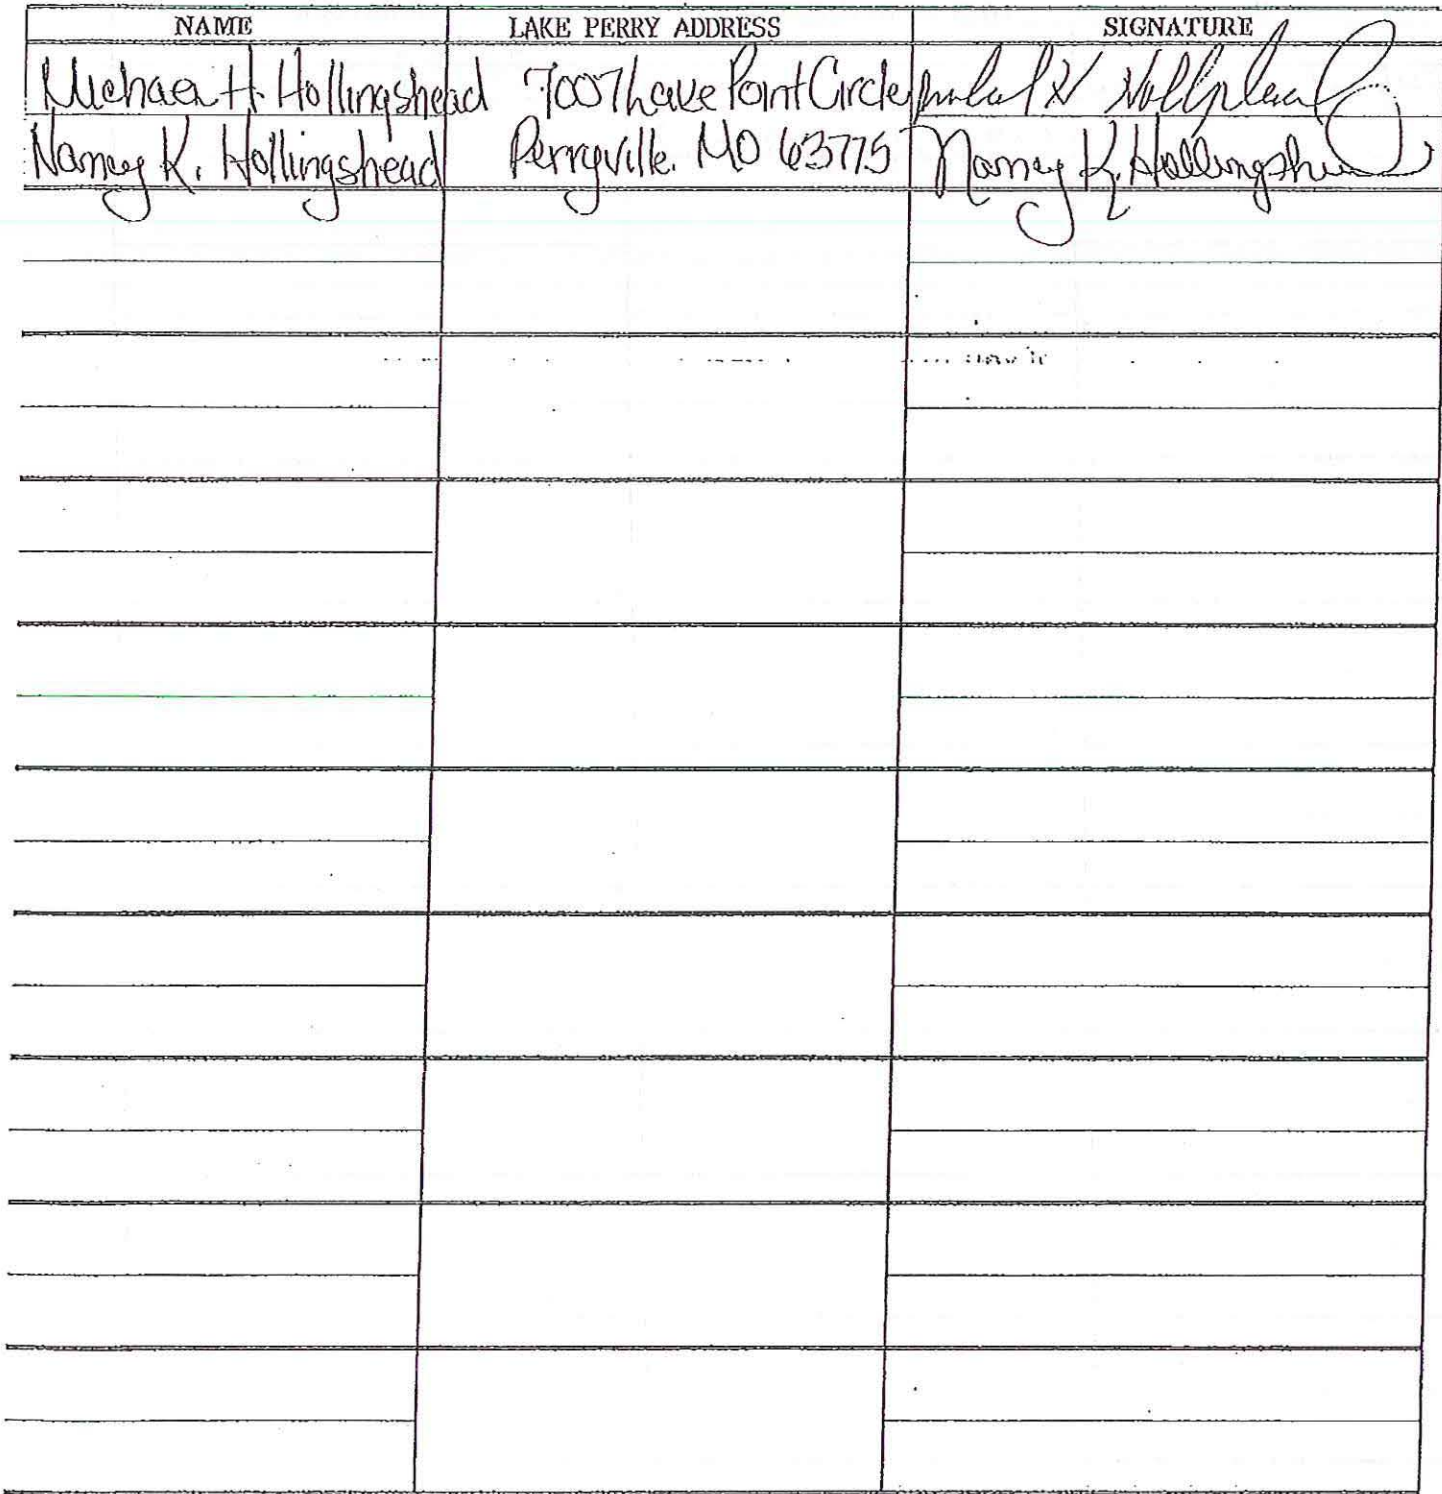 NAME LAKE PERRY ADDRESS SIGNATURE
Michael H. Hollingshead 7007 Lake Point Circle Michael H Hollingshead
Nancy K. Hollingshead Perryville. MO 63775 Nancy K. Hollingshead